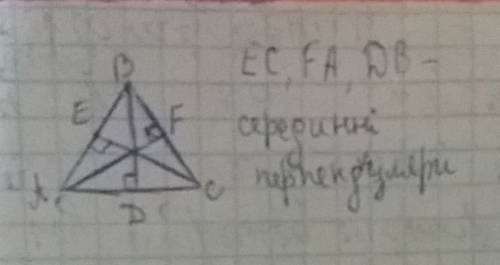 B
E F
A C
D
EC, FA, DB –
серединні
перпендуляри